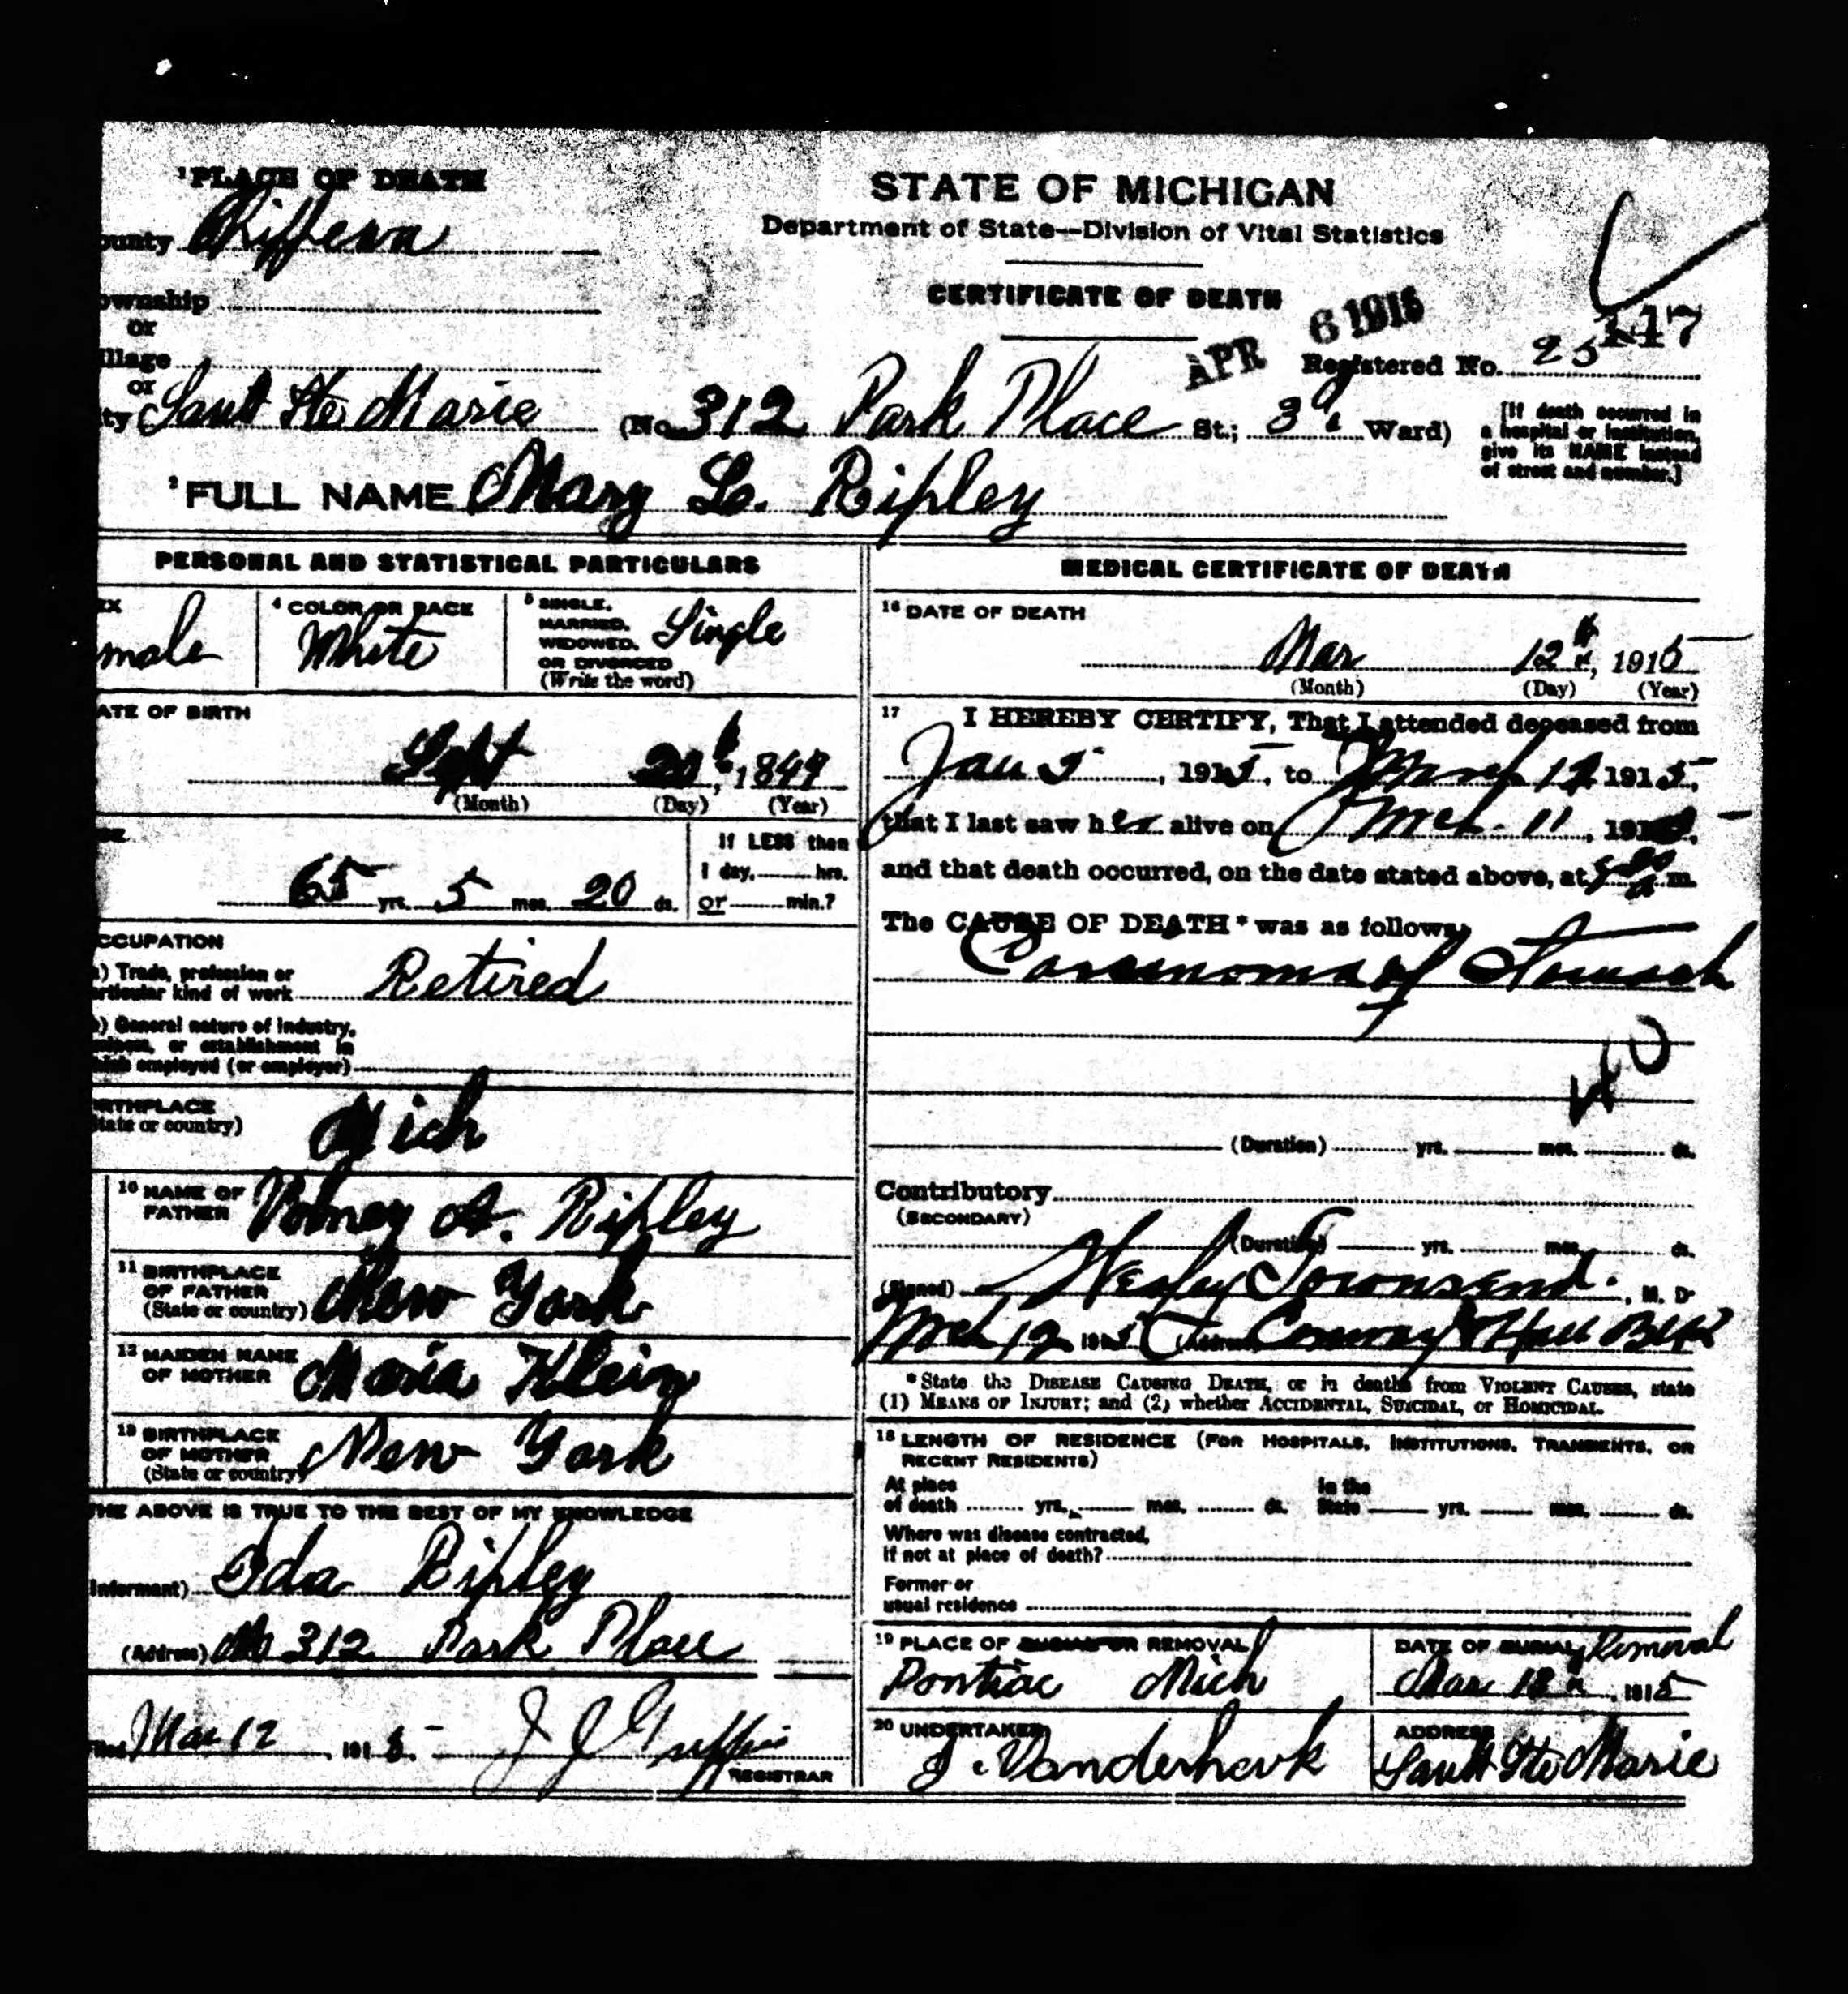 1 PLACE OF DEATH
ounty Chippewa
ownship
or
illage
or
ty Sault Ste Marie
STATE OF MICHIGAN
Department of State—Division of Vital Statistics
CERTIFICATE OF DEATH
APR 6 1915
147
Registered No. 25
(No 312 Park Place St.; 3d Ward)
[If death occurred in
a hospital or institution,
give its NAME instead
of street and number.]
2 FULL NAME Mary L. Ripley
PERSONAL AND STATISTICAL PARTICULARS
EX
male
4 COLOR OR RACE
White
5 SINGLE,
MARRIED,
WIDOWED,
OR DIVORCED
(Write the word)
Single
ATE OF BIRTH
Sept 20th, 1849
(Month) (Day) (Year)
GE
65 yrs. 5 mos. 20 ds.
If LESS than
1 day, hrs.
or min.?
CCUPATION
a) Trade, profession or
rticular kind of work Retired
b) General nature of industry,
siness, or establishment in
hich employed (or employer)
RTHPLACE
tate or country) Mich
10 NAME OF
FATHER Volney A. Ripley
11 BIRTHPLACE
OF FATHER
(State or country) New York
12 MAIDEN NAME
OF MOTHER Maria Klein
13 BIRTHPLACE
OF MOTHER
(State or country) New York
THE ABOVE IS TRUE TO THE BEST OF MY KNOWLEDGE
Informant) Ida Ripley
(Address) No 312 Park Place
iled Mar 12, 1915. J J Griffin
REGISTRAR
MEDICAL CERTIFICATE OF DEATH
16 DATE OF DEATH
Mar 12th, 1915
(Month) (Day) (Year)
17 I HEREBY CERTIFY, That I attended deceased from
Jan 5, 1915, to March 12 1915,
that I last saw her alive on Mch. 11, 191
and that death occurred, on the date stated above, at m.
The CAUSE OF DEATH* was as follows:
Carcinoma of Stomach
40
(Duration) yrs. mos. ds.
Contributory
(SECONDARY)
(Duration) yrs. mos. ds.
(Signed) Wesley Townsend, M. D.
Mch 12 1915 (Address) Conway & Hall Blk
*State the DISEASE CAUSING DEATH, or in deaths from VIOLENT CAUSES, state
(1) MEANS OF INJURY; and (2) whether ACCIDENTAL, SUICIDAL, or HOMICIDAL.
18 LENGTH OF RESIDENCE (FOR HOSPITALS, INSTITUTIONS, TRANSIENTS, OR
RECENT RESIDENTS)
At place
of death yrs. mos. ds.
In the
State yrs. mos. ds.
Where was disease contracted,
if not at place of death?
Former or
usual residence
19 PLACE OF BURIAL OR REMOVAL
Pontiac Mich
DATE OF BURIAL Removal
Mar 12th, 1915
20 UNDERTAKER
J. Vanderhook
ADDRESS
Sault Ste Marie